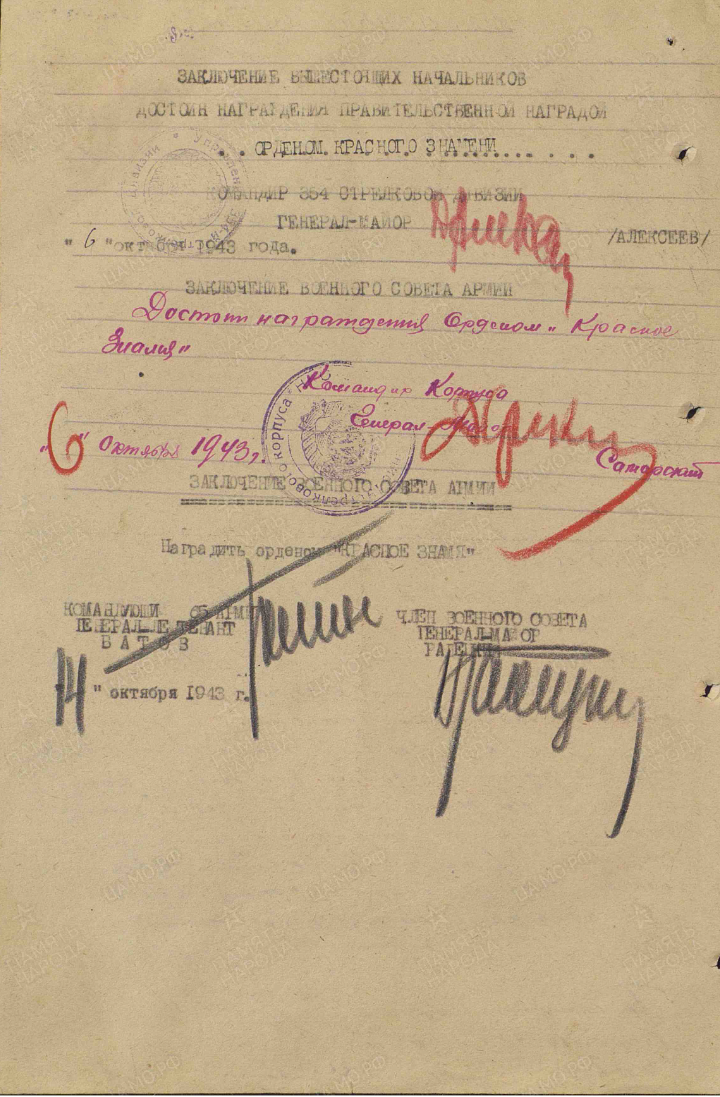 ЗАКЛЮЧЕНИЕ ВЫШЕСТОЯЩИХ НАЧАЛЬНИКОВ
ДОСТОИН НАГРАЖДЕНИЯ ПРАВИТЕЛЬСТВЕННОЙ НАГРАДОЙ
. . ОРДЕНОМ КРАСНОГО ЗНАМЕНИ . . .
КОМАНДИР 354 СТРЕЛКОВОЙ ДИВИЗИИ
ГЕНЕРАЛ-МАЙОР
/АЛЕКСЕЕВ/
"6" октября 1943 года.
ЗАКЛЮЧЕНИЕ ВОЕННОГО СОВЕТА АРМИИ
Достоин награждения Орденом "Красное
Знамя"
Командир Корпуса
Генерал-майор
Самарский
"6" октября 1943 г.
ЗАКЛЮЧЕНИЕ ВОЕННОГО СОВЕТА АРМИИ
Наградить орденом "КРАСНОЕ ЗНАМЯ"
КОМАНДУЮЩИ 65 АРМИ
ГЕНЕРАЛ-ЛЕЙТЕНАНТ
БАТОВ
ЧЛЕН ВОЕННОГО СОВЕТА
ГЕНЕРАЛ-МАЙОР
РАДЕЦКИЙ
14 " октября 1943 г.